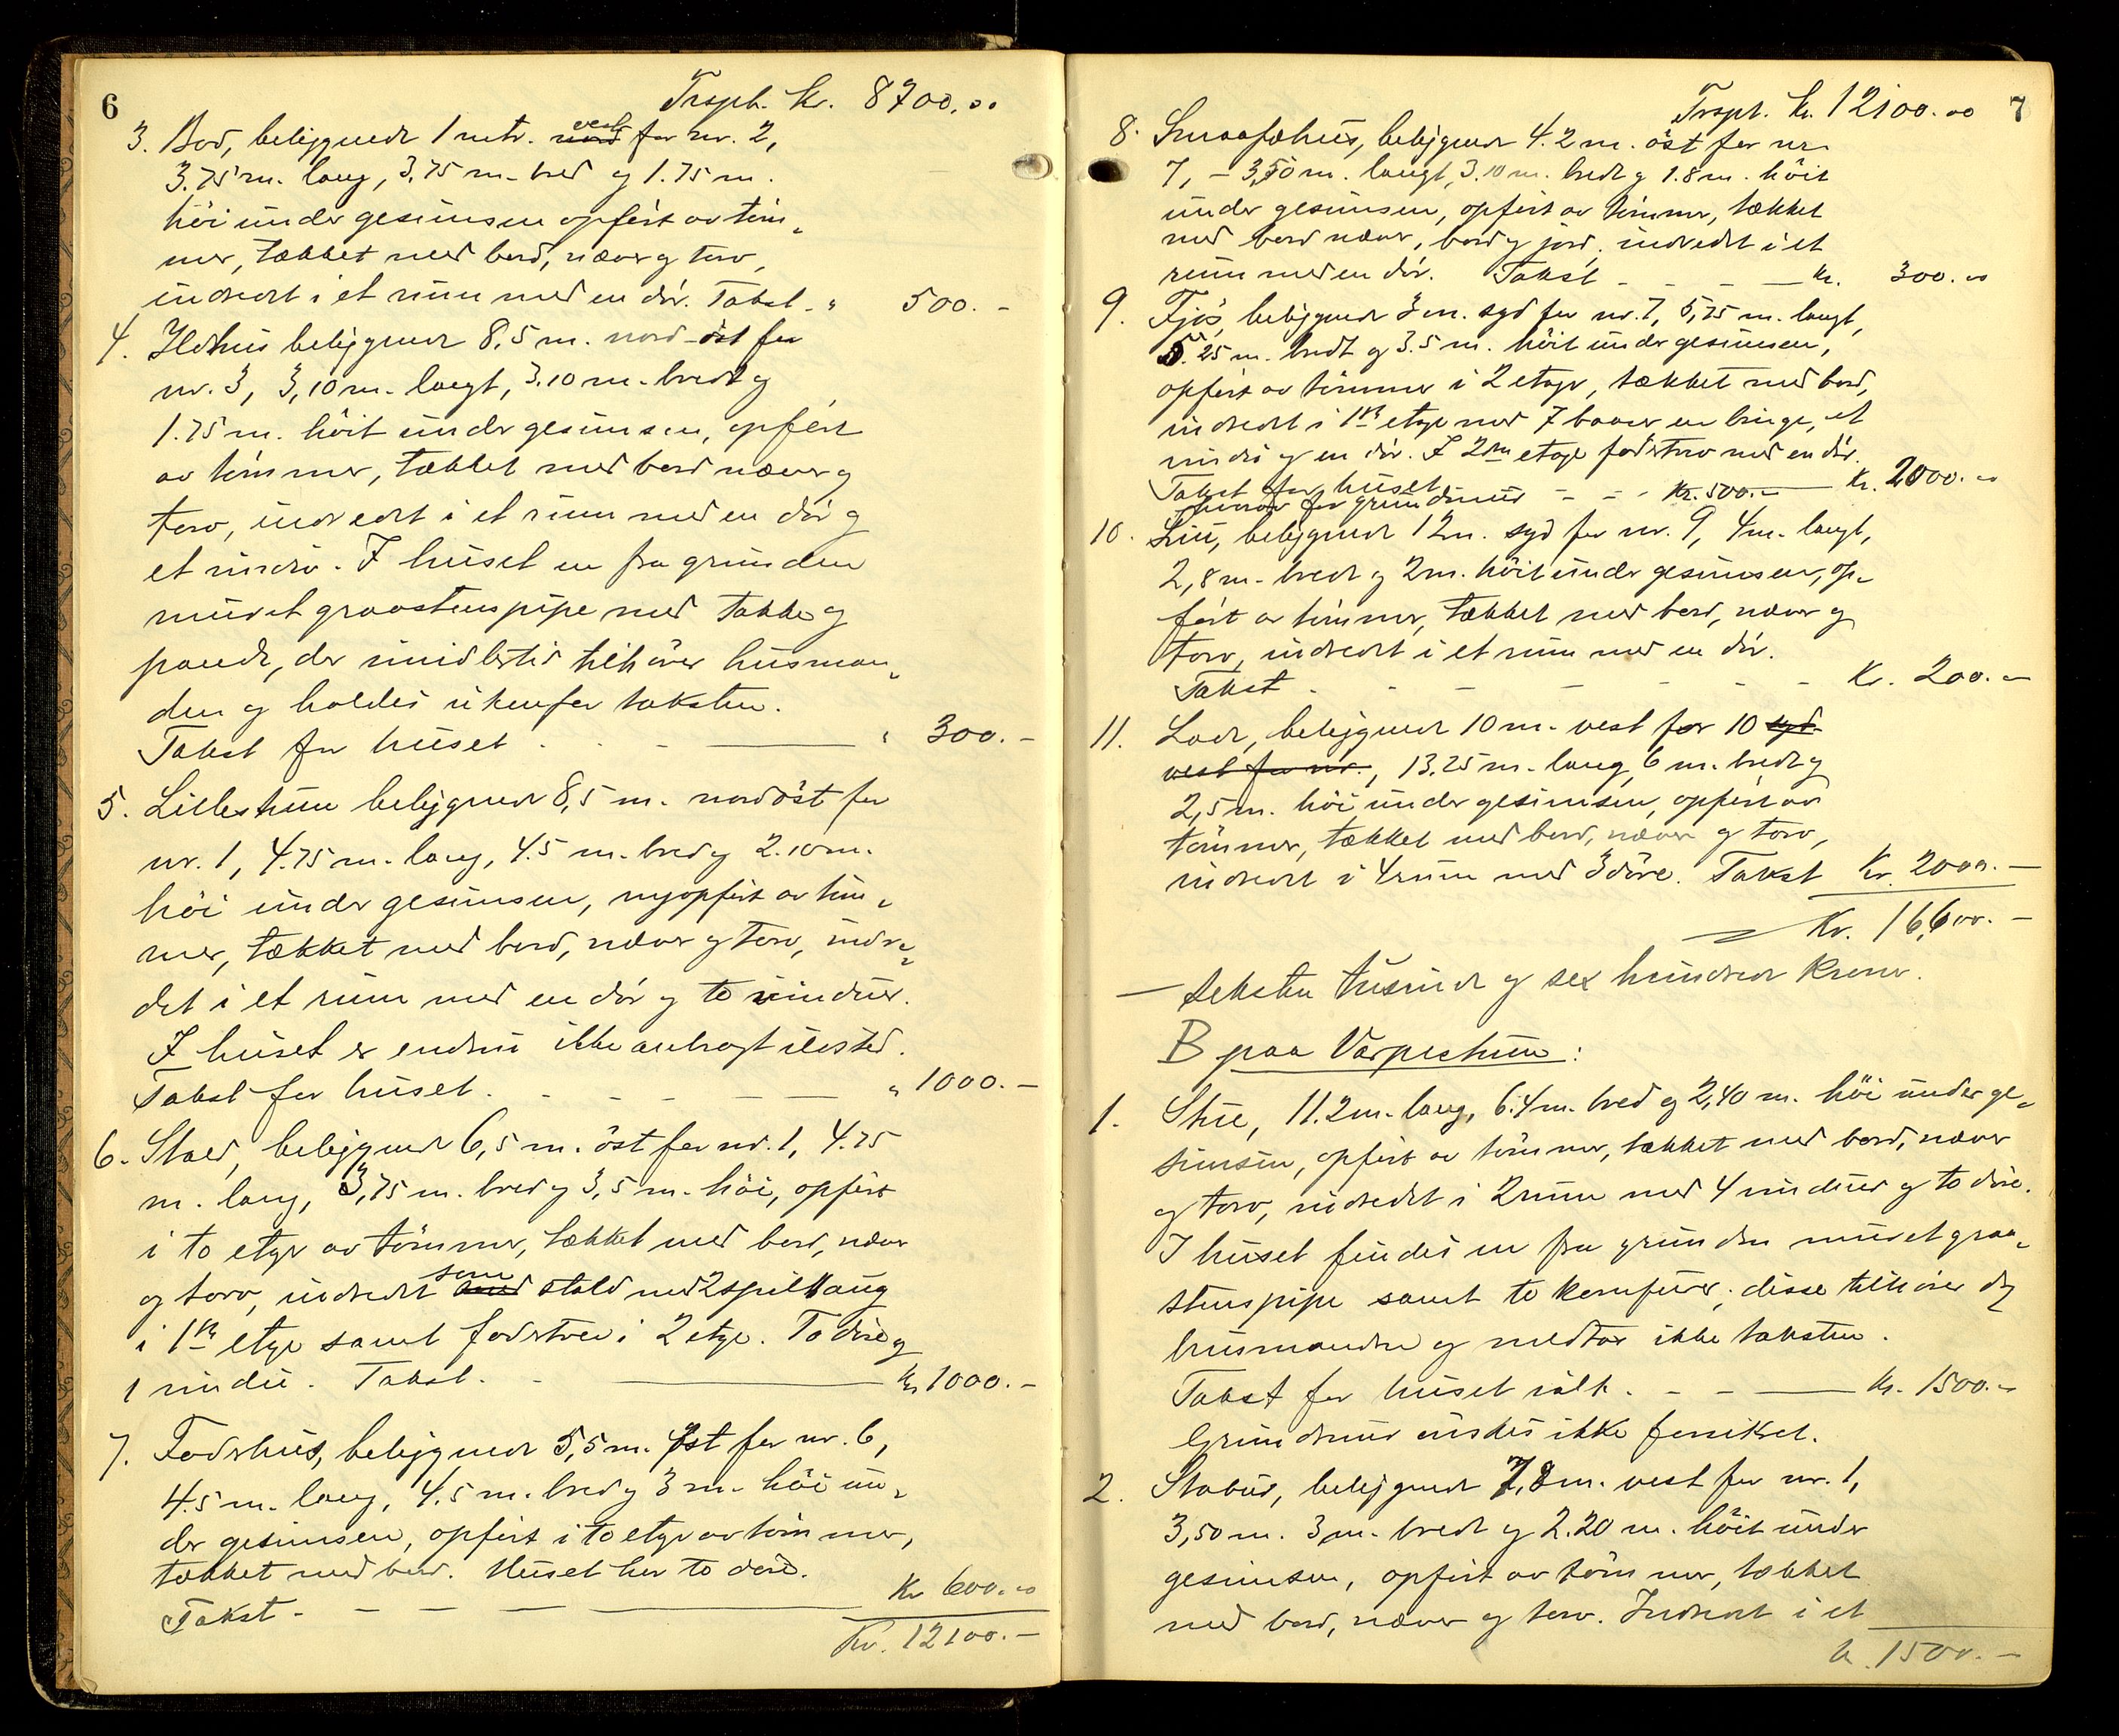 6
Trspt. kr. 8700.00
3. Bod, beliggende 1 mtr. nord vest for nr. 2,
3.75 m. lang, 3.75 m. bred og 1.75 m.
höi under gesimsen opfört av töm-
mer, tækket med bord, næver og torv,
indredet i et rum med en dör. Takst - " 500.-
4. Ildhus beliggende 8,5 m. nord-öst for
nr. 3, 3,10 m. langt, 3.10 m. bredt og
1.75 m. höit under gesimsen, opfört
av tömmer, tækket med bord næver og
torv, indredet i et rum med en dör og
et vindu. I huset en fra grunden
muret graastenspipe med takke og
pande, der imidlertid tilhörer husman-
den og holdes utenfor taksten.
Takst for huset - " 300.-
5. Lillestuen beliggende 8,5 m. nordöst for
nr. 1, 4.75 m. lang, 4.5 m. bred og 2.10 m.
höi under gesimsen, nyopfört av töm-
mer, tækket med bord, næver og torv, indre-
det i et rum med en dör og to vinduer.
I huset er endnu ikke anbragt ildsted.
Takst for huset. " 1000.-
6. Stald, beliggende 6,5 m. öst for nr. 1, 4.75
m. lang, 3,75 m. bred og 3,5 m. höi, opfört
i to etager av tömmer, tækket med bord, næver
og torv, indredet med som stald med 2 spilltaug
i 1ste etage samt foderrum i 2 etage. To döre og
1 vindu. Takst. - Kr. 1000.-
7. Foderhus, beliggende 5,5 m. öst for nr. 6,
4.5 m. lang, 4.5 m. bred og 3 m. höi un-
der gesimsen, opfört i to etager av tömmer,
tækket med bord. Huset har to döre.
Takst - Kr 600.00
Kr. 12100.-
7
Trspt. kr. 12100.00
8. Smaafæhus, beliggende 4.2 m. öst for nr.
7, - 3,50 m. langt, 3.10 m. bredt og 1.8 m. höit
under gesimsen, opfört av tömmer, tækket
med bord næver, bord og jord, indredet i et
rum med en dör. Takst - Kr. 300.00
9. Fjös, beliggende 3 m. syd for nr. 7, 5,75 m. langt,
5.25 m. bredt og 3.5 m. höit under gesimsen,
opfört av tömmer i 2 etager, tækket med bord,
indredet i 1ste etage med 7 baaser en binge, et
vindu og en dör. I 2den etage med en dör.
Takst for huset Kr. 2000.00
herav for grundmur - - - Kr. 500.-
10. beliggende 12 m. syd for nr. 9, 4 m. langt,
2,8 m. bredt og 2 m. höit under gesimsen, op-
fört av tömmer, tækket med bord, næver og
torv, indredet i et rum med en dör.
Takst - Kr. 200.-
11. Lade, beliggende 10 m. vest for 10 syd
vest for nr., 13,25 m. lang, 6 m. bredt og
2,5 m. höi under gesimsen, opfört av
tömmer, tækket med bord, næver og torv,
indredet i 4 rum med 3 döre. Takst Kr. 2000.-
Kr. 16,600.-
— seksten tusinde og sex hundrede kroner.
B paa Varpestuen:
1. Stue, 11.2 m. lang, 6.4 m. bred og 2,40 m. höi under ge-
simsen, opfört av tömmer, tækket med bord, næver
og torv, indredet i 2 rum med 4 vinduer og to döre.
I huset findes en fra grunden muret graa-
stenspipe samt to komfurer; disse tilhörer dog
husmanden og medtas ikke taksten.
Takst for huset Kr. 1500.-
Grundmur önskes ikke forsikret.
2. Stabur, beliggende 7,8 m. vest for nr. 1,
3,50 m. 3 m. bredt og 2.20 m. höit under
gesimsen, opfört av tömmer, tækket
med bord, næver og torv. Indredet i et
kr. 1500.-